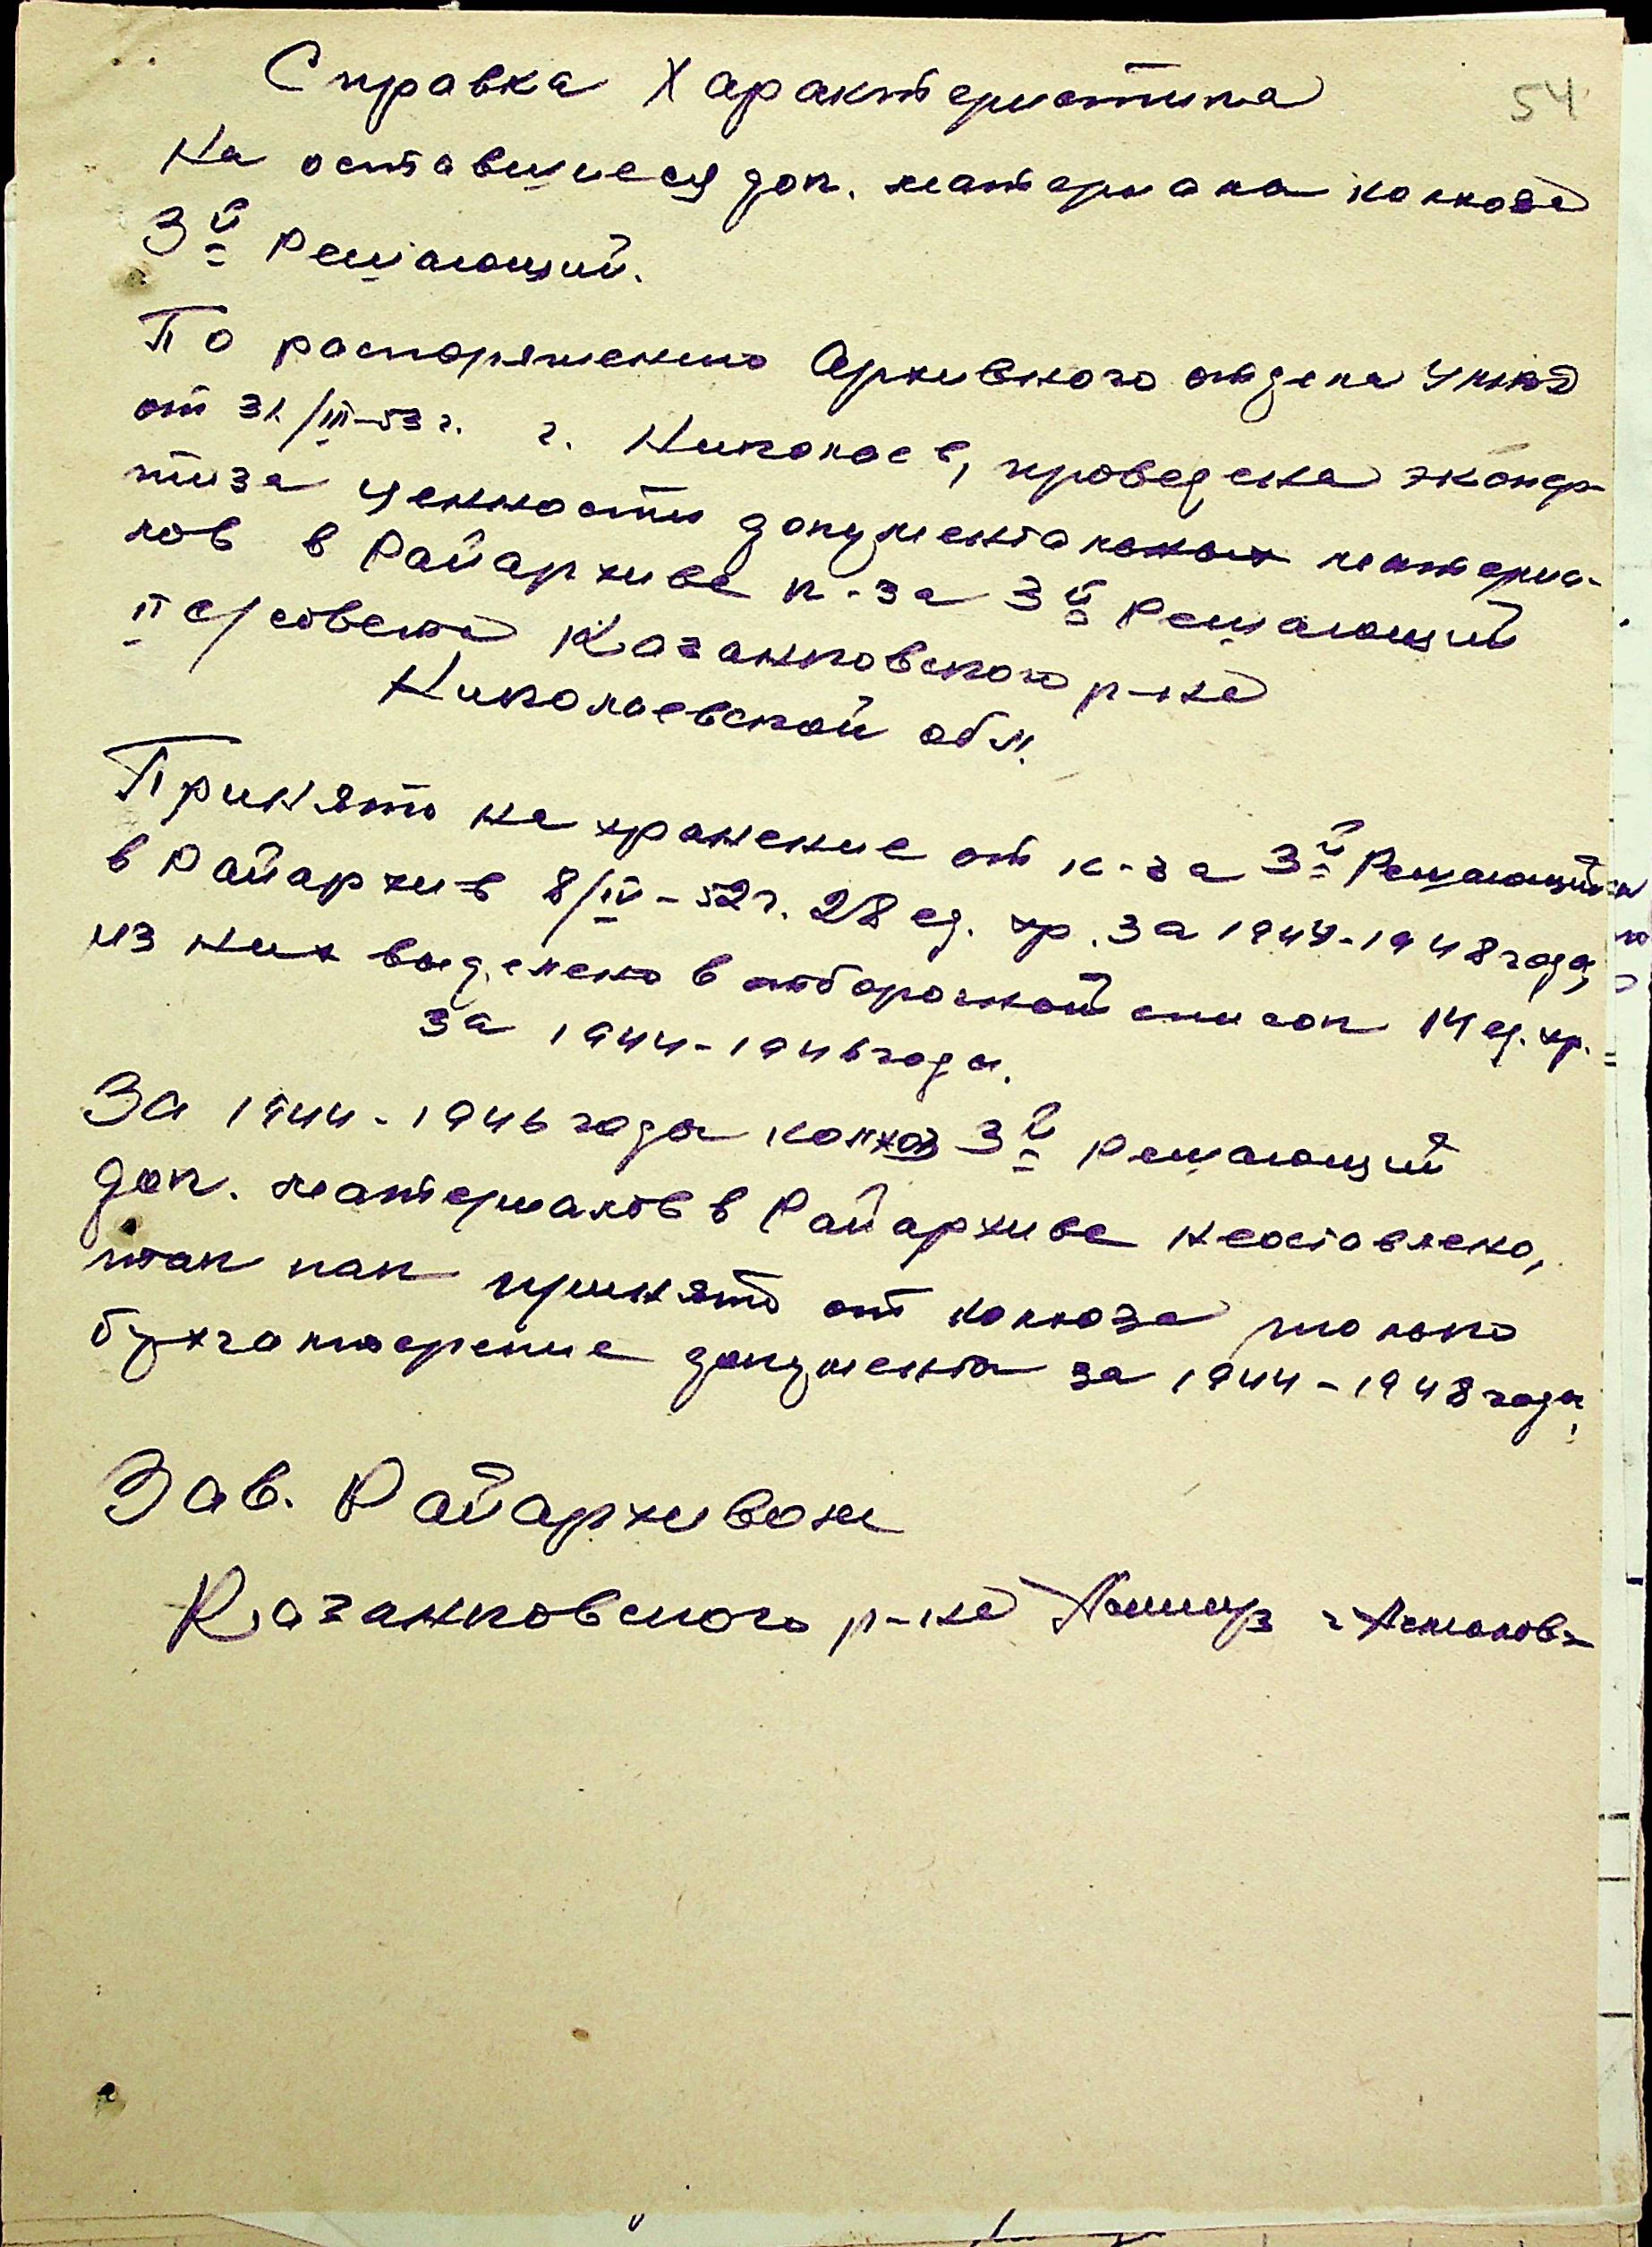 54
Справка Характеристика
На оставшиеся док. материала колхоза
3й Решающий.
По распоряжению Архивного отдела УМВД
от 31/III-53 г. г. Николаев, проведена экспер-
тиза ценности документальных материа-
лов в Райархиве к-за 3й Решающий
II с/совета Казанковского р-на
Николаевской обл.
Принято на хранение от к-за 3й Решающий
в Райархив 8/IV-52 г. 28 ед. хр. за 1944-1948 года,
из них выделено в отборочной список 14 ед. хр.
за 1944-1946 года.
За 1944-1946 года колхоз 3й Решающий
док. материалов в Райархиве неоставлено,
так как принято от колхоза только
бухгалтерские документы за 1944-1948 года.
Зав. Райархивом
Казанковского р-на